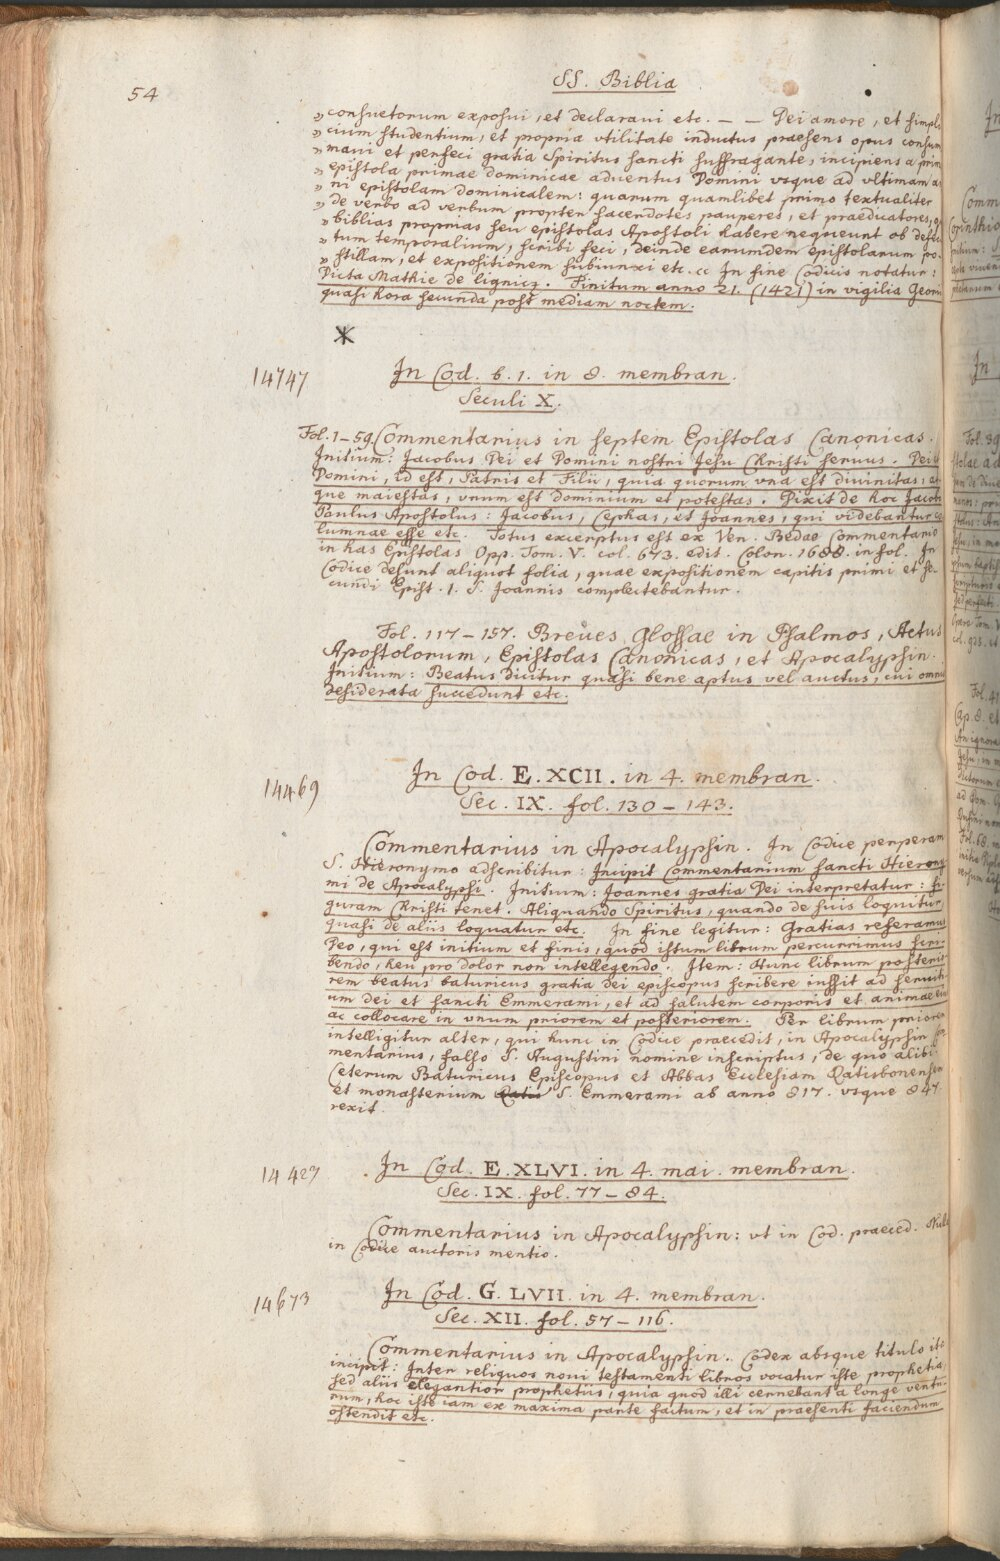 54
SS. Biblia
„ consuetorum exposui, et declaravi etc. — — Dei amore, et simpli
„ cium studentium, et propria vtilitate inductus praesens opus consum
„ mavi et perfeci gratia Spiritus sancti suffragante, incipiens a prim
„ epistola primae dominicae adventus Domini vsque ad vltimam a
„ ni epistolam dominicalem: quarum quamlibet primo textualiter
„ de verbo ad verbum propter sacerdotes pauperes, et praedicatores, q
„ biblias proprias seu epistolas Apostoli habere nequeunt ob defec
„ tum temporalium, scribi feci, deinde earumdem epistolarum po-
„ stillam, et expositionem subiunxi etc. cc In fine Codicis notatur:
Dicta Mathie de lignicz. Finitum anno 21. (1421) in vigilia Georii
quasi hora secunda post mediam noctem.
*
14747
In Cod. b. 1. in 8. membran.
Seculi X.
Fol. 1-59. Commentarius in septem Epistolas Canonicas.
Initium: Jacobus Dei et Domini nostri Jesu Christi servus. Dei
Domini, id est, Patris et Filii, quia quorum vna est divinitas, at
que maiestas, vnum est dominium et potestas. Dixit de hoc Jacob
Paulus Apostolus: Jacobus, Cephas, et Joannes, qui videbantur co
lumnae esse etc. Totus excerptus est ex Ven. Bedae Commentario
in has Epistolas Opp. Tom. V. col. 673. edit. Colon. 1688. in fol. In
Codice desunt aliquot folia, quae expositionem capitis primi et se-
cundi Epist. 1. S. Joannis complectebantur.
Fol. 117-157. Breves glossae in Psalmos, Actus
Apostolorum, Epistolas Canonicas, et Apocalypsin.
Initium: Beatus dicitur quasi bene aptus vel auctus, cui omnia
desiderata succedunt etc.
14469
In Cod. E. XCII. in 4. membran.
Sec. IX. fol. 130-143.
Commentarius in Apocalypsin. In Codice perperam
S. Hieronymo adscribitur: Incipit Commentarium sancti Hierony
mi de Apocalypsi. Initium: Joannes gratia Dei interpretatur: fi-
guram Christi tenet. Aliquando Spiritus, quando de suis loquitur,
quasi de aliis loquatur etc. In fine legitur: Gratias referamus
Deo, qui est initium et finis, quod istum librum percurrimus scri-
bendo, heu pro dolor non intellegendo. Item: Hunc librum posterio
rem beatus baturicus gratia dei episcopus scribere iussit ad servit
um dei et sancti Emmerami, et ad salutem corporis et animae sui
ac collocare in vnum priorem et posteriorem. Per librum priorem
intelligitur alter, qui hunc in Codice praecedit, in Apocalypsin Com
mentarius, falso S. Augustini nomine inscriptus, de quo alibi.
Ceterum Baturicus Episcopus et Abbas Ecclesiam Ratisbonensem
et monasterium S. Emmerami ab anno 817. vsque 847
rexit.
14427
In Cod. E. XLVI. in 4. mai. membran.
Sec. IX. fol. 77-84.
Commentarius in Apocalypsin: vt in Cod. praeced. Nulla
in Codice auctoris mentio.
14673
In Cod. G. LVII. in 4. membran.
Sec. XII. fol. 57-116.
Commentarius in Apocalypsin. Codex absque titulo ita
incipit: Inter reliquos novi testamenti libros vocatur iste prophetia,
sed aliis elegantior prophetiis, quia quod illi cernebant a longe ventu-
rum, hoc iste iam ex maxima parte factum, et in praesenti faciendum
ostendit etc.